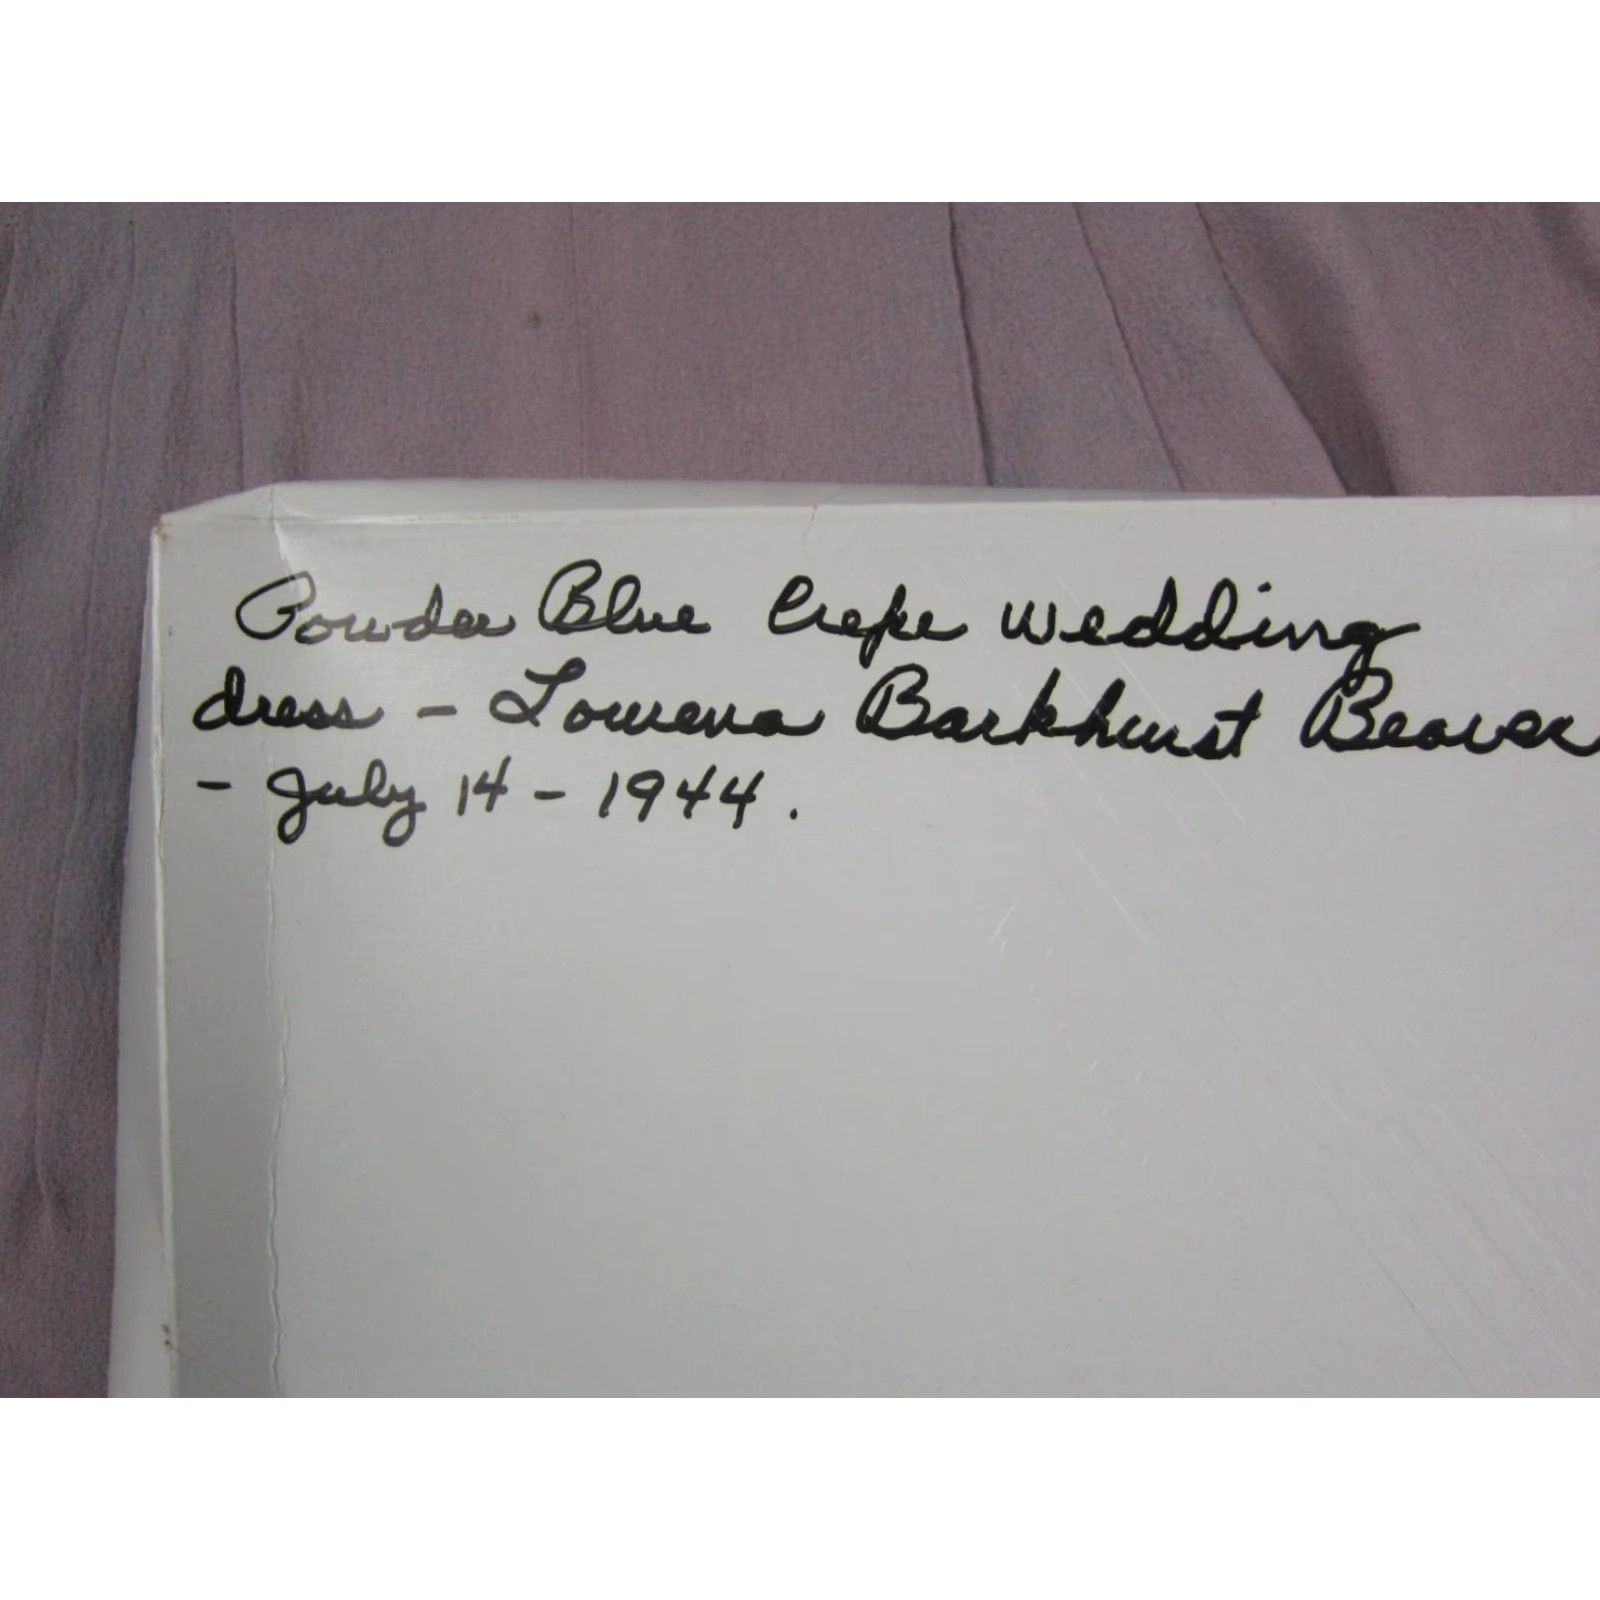 Powder Blue Crepe wedding
dress - Lowena Barkhurst Beaver
- July 14 - 1944.